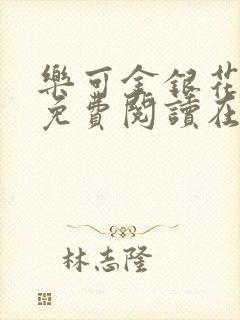 樂可金銀花
免費閱讀在
林志隆